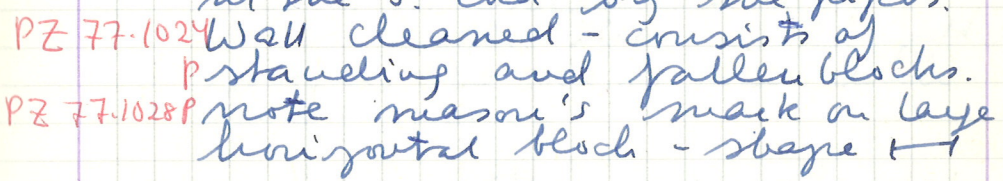 PZ 77.1024 Wall cleaned - consists of
P standing and fallen blocks.
PZ 77.1028P note mason's mark on large
horizontal block - shape ⊢⊣